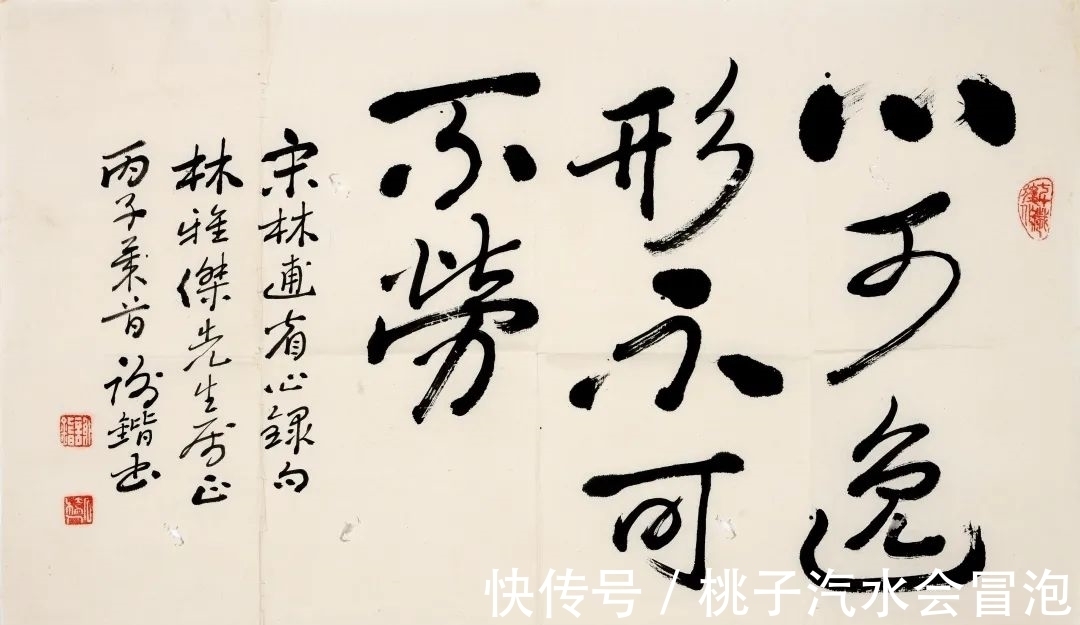 心可逸
形不可
不勞
宋林逋省心錄句
林雅傑先生属正
丙子菊首謝鍇书
快传号 / 桃子汽水会冒泡